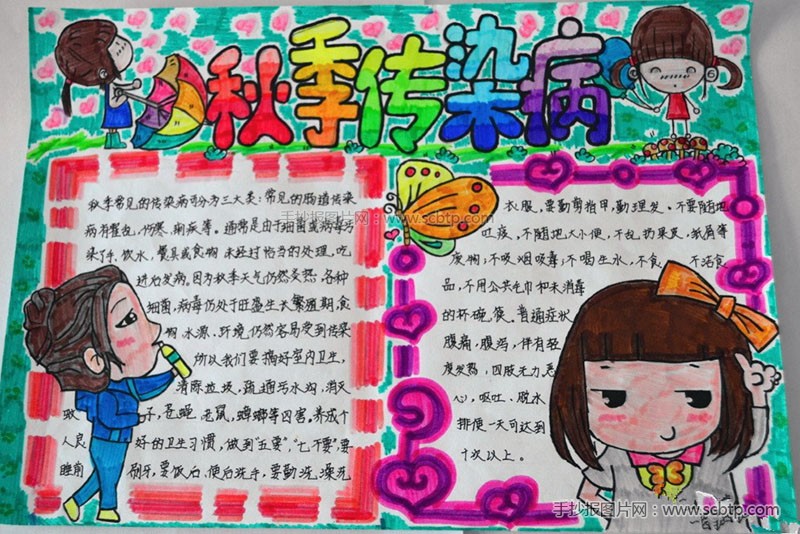 秋季传染病
秋季常见的传染病可分为三大类:常见的肠道传染
病有霍乱,伤寒,痢疾等。通常是由于细菌或病毒污
染了手,饮水,餐具或食物未经过恰当的处理,吃
进后发病。因为秋季天气仍然炎热,各种
细菌,病毒仍处于旺盛生长繁殖期,食
物水源、环境仍然容易受到传染
所以我们要搞好室内卫生,
清除垃圾,疏通污水沟,消灭
蚊子,苍蝇,老鼠,蟑螂等四害,养成个
人良好的卫生习惯,做到"五要","七不要":要
睡前刷牙,要饭后,便后洗手,要勤洗澡洗
衣服,要勤剪指甲,勤理发。不要随地
吐痰,不随地大小便,不乱扔果皮,纸屑等
废物,不吸烟吸毒,不喝生水,不食不洁食
品,不用公共毛巾和未消毒
的杯碗,筷。普通症状
腹痛,腹泻,伴有轻
度发热,四肢无力,恶
心,呕吐、脱水
排便一天可达到
十次以上。
手抄报图片网:www.scbtp.com
手抄报图片网:www.scbtp.com